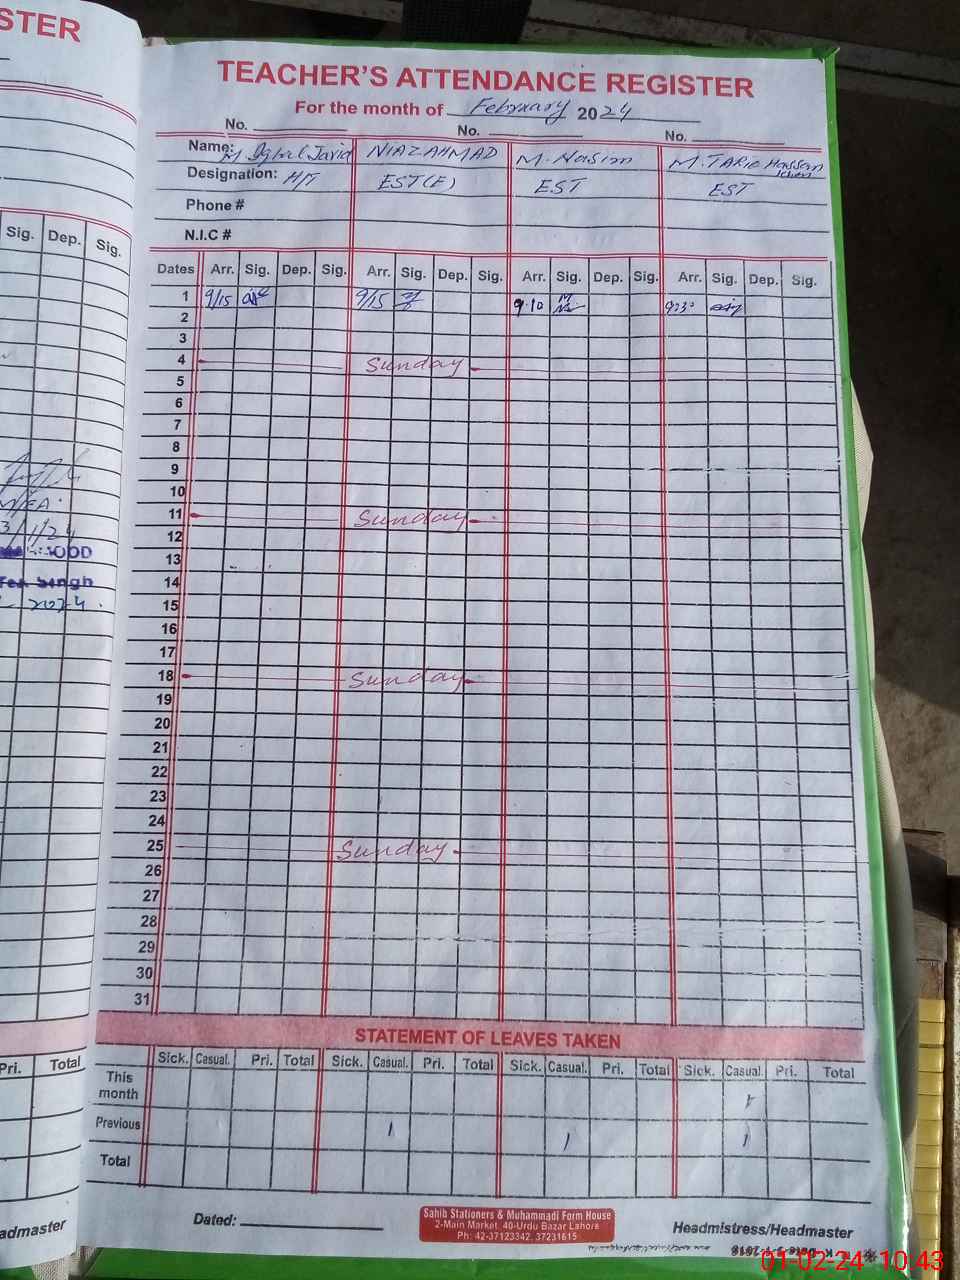 STER
TEACHER'S ATTENDANCE REGISTER
For the month of February 2024
No. No. No.
Name: M. Iqbal Javid NIAZ AHMAD M. Nasim M. TARIQ Hassan
Designation: H/T EST(E) EST EST
Phone #
N.I.C #
Sig. Dep. Sig.
Dates Arr. Sig. Dep. Sig. Arr. Sig. Dep. Sig. Arr. Sig. Dep. Sig. Arr. Sig. Dep. Sig.
1 9/15 9/15 9.10 930
2
3
4 Sunday
5
6
7
8
9
10
11 Sunday
12
13
14
15
16
17
18 Sunday
19
20
21
22
23
24
25 Sunday
26
27
28
29
30
31
STATEMENT OF LEAVES TAKEN
Pri. Total
Sick. Casual. Pri. Total Sick. Casual. Pri. Total Sick. Casual. Pri. Total Sick. Casual. Pri. Total
This month
Previous 1 1 1
Total
Dated:
Sahib Stationers & Muhammadi Form House
2-Main Market, 40-Urdu Bazar Lahore
Ph: 42-37123342, 37231615
Headmistress/Headmaster
admaster
01-02-24 10:43